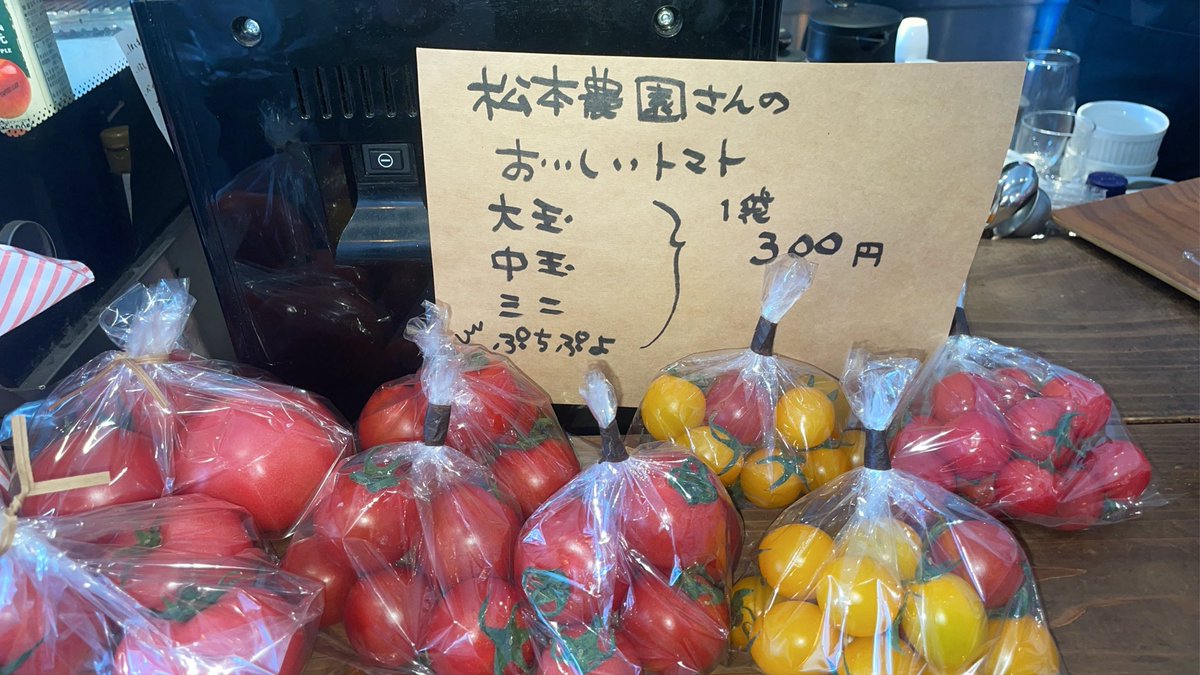 松本農園さんの
おいしいトマト
大玉
中玉
ミニ
ぷちぷよ
1袋
300円